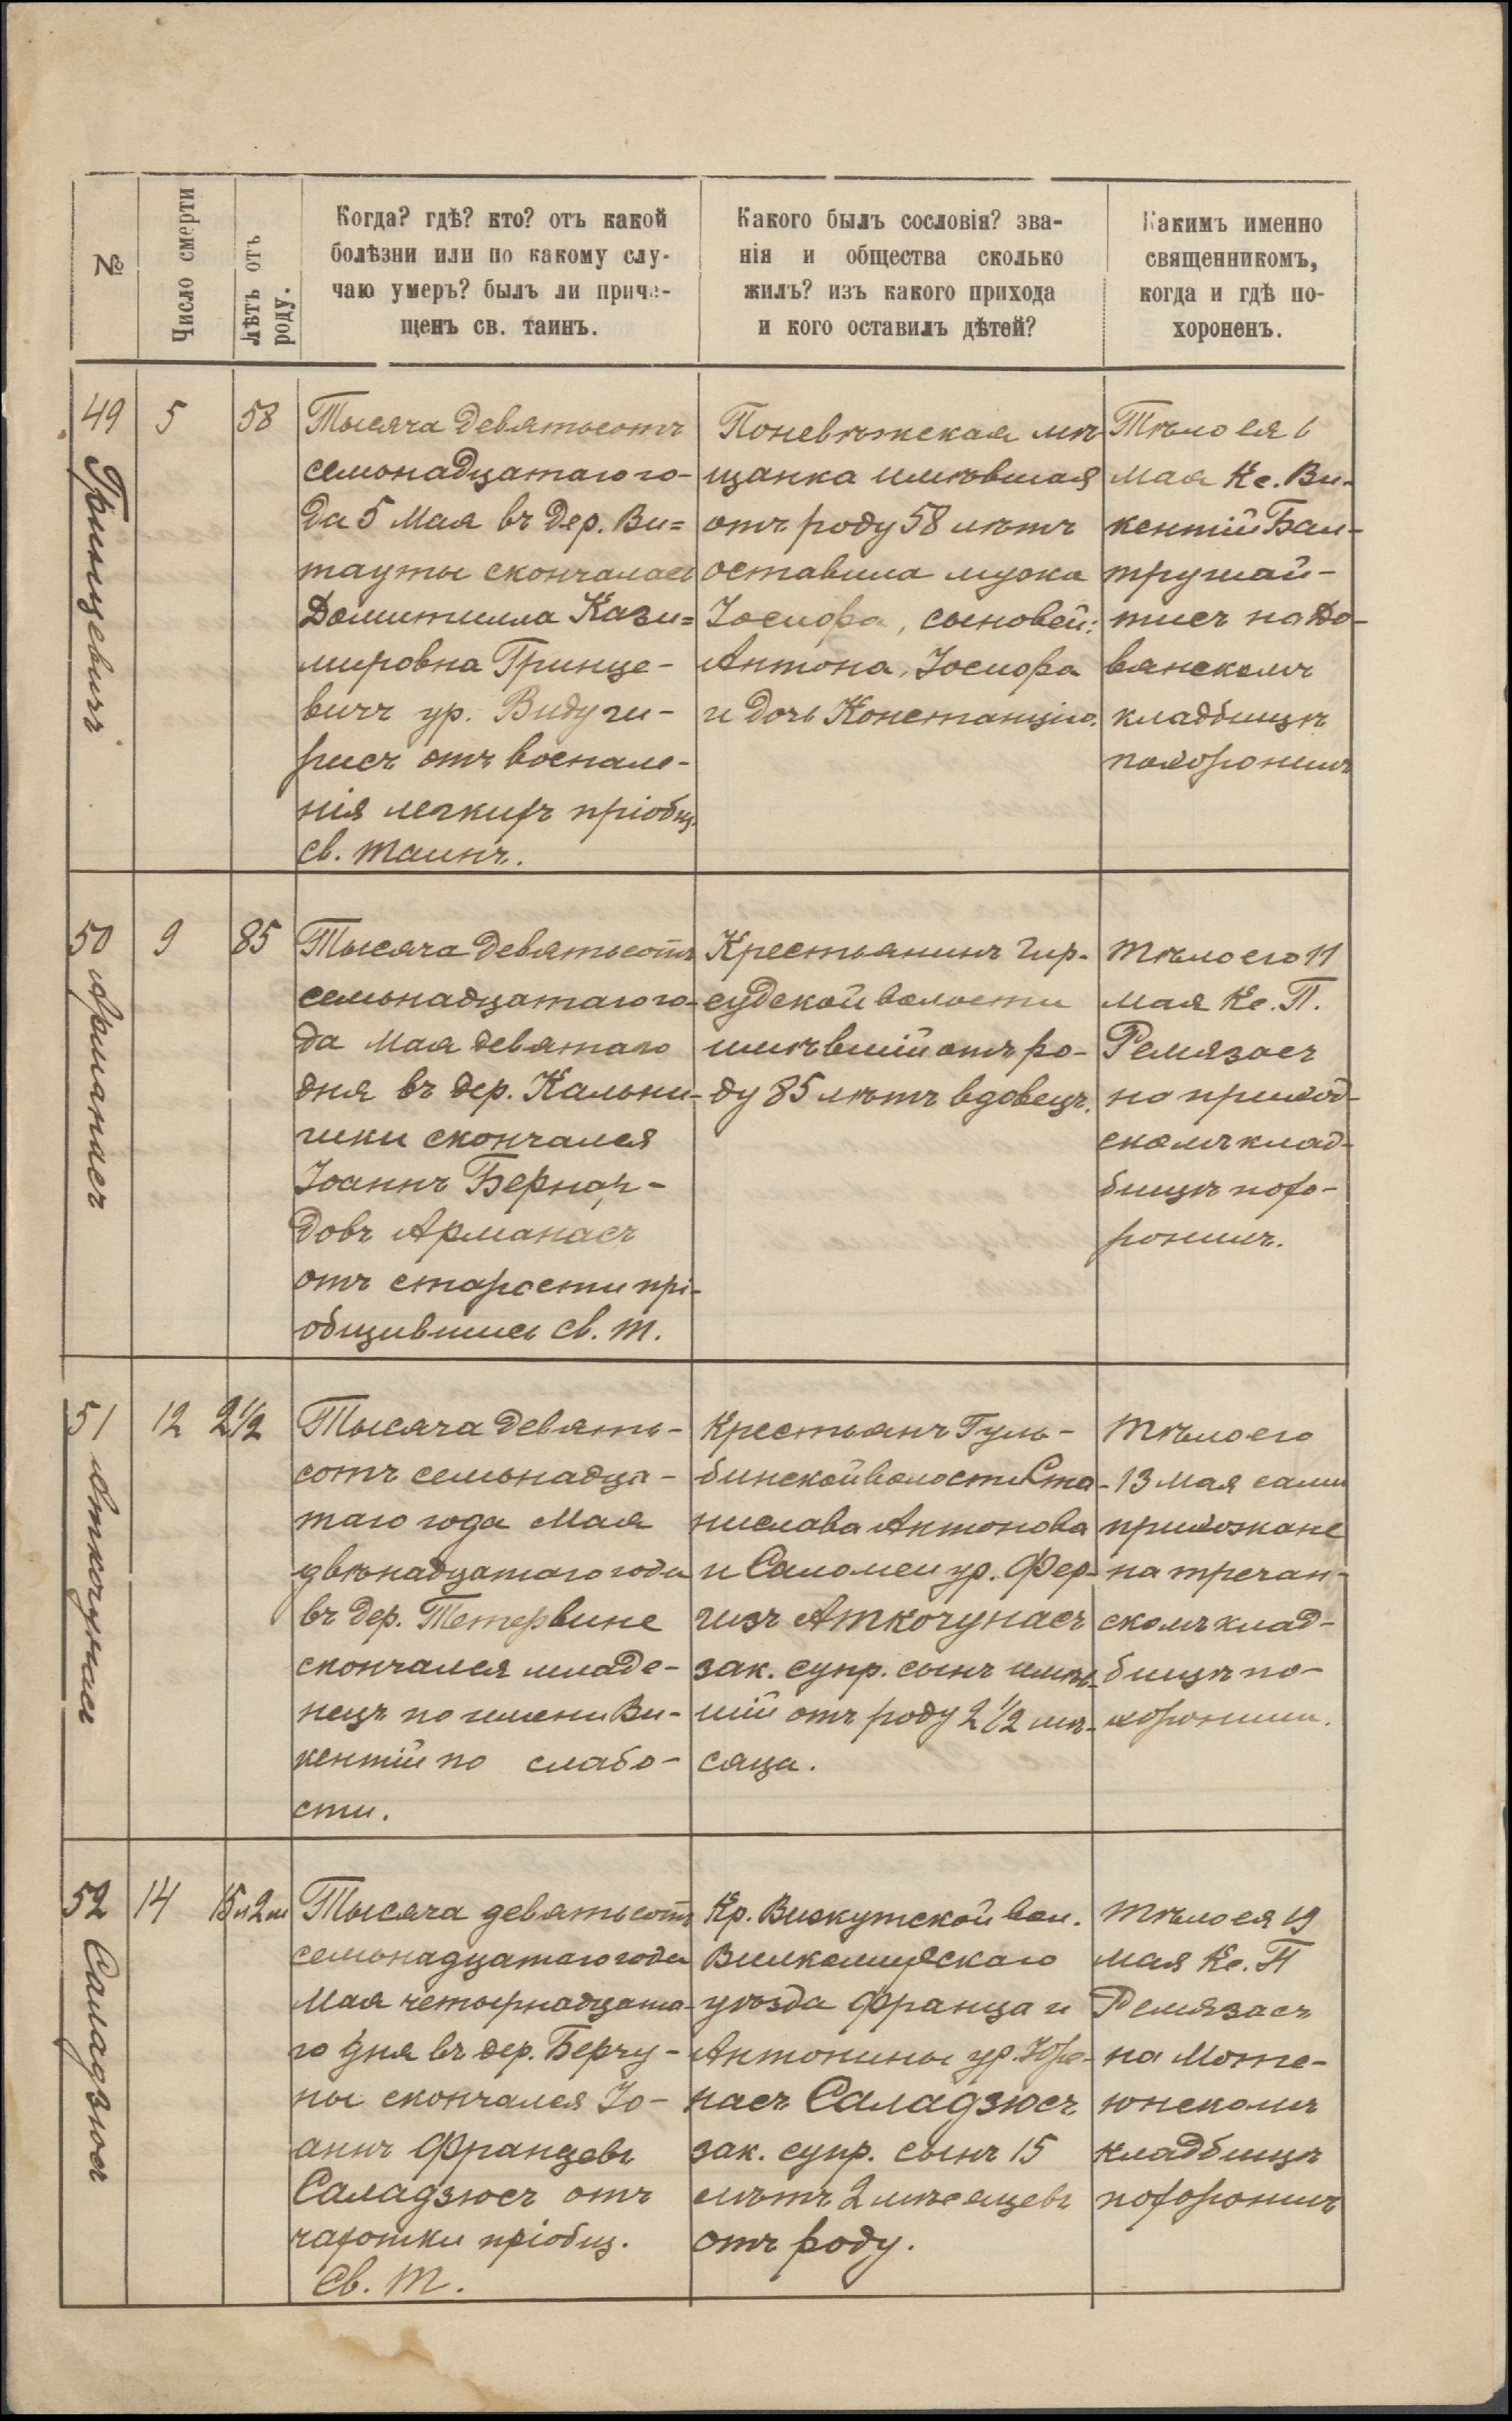 №
Число смерти
лѣтъ отъ
роду.
Когда? гдѣ? кто? отъ какой
болѣзни или по какому слу-
чаю умеръ? былъ ли приче-
щенъ св. таинъ.
Какого былъ сословія? зва-
нія и общества сколько
жилъ? изъ какого прихода
и кого оставилъ дѣтей?
Какимъ именно
священникомъ,
когда и гдѣ по-
хороненъ.
49
Гринцевичъ
5
58
Тысяча девятьсотъ
семьнадцатаго го-
да 5 Мая въ дер. Ви=
тауты скончалась
Домитилла Кази=
мировна Гринце-
вичъ ур. Видуги-
рисъ отъ воспале-
нія легкихъ пріобщ.
св. таинъ.
Поневѣжская мѣ-
щанка имѣвшая
отъ роду 58 лѣтъ
оставила мужа
Іосифа, сыновей:
Антона, Іосифа
и дочь Констанцію.
Тѣло ея 6
мая Кс. Ви-
кентій Бал-
трушай-
тисъ на До-
ванскомъ
кладбищѣ
похоронилъ
50
Арманасъ
9
85
Тысяча девятьсотъ
семьнадцатаго го-
да Мая девятаго
дня въ дер. Кальни-
шки скончался
Іоаннъ Бернар-
довъ Арманасъ
отъ старости прі-
общившись св. Т.
Крестьянинъ Гир-
судской волости
имѣвшій отъ ро-
ду 85 лѣтъ вдовецъ.
Тѣло его 11
мая Кс. П.
Ремязасъ
на приход-
скомъ клад-
бищѣ похо-
ронилъ.
51
Аткочунасъ
12
2 1/2
Тысяча девять-
сотъ семьнадца-
таго года Мая
двѣнадцатаго года
въ дер. Тетервине
скончался младе-
нецъ по имени Ви-
кентій по слабо-
сти.
Крестьянъ Гуль-
бинской волости Ста-
нислава Антонова
и Саломеи ур. Фер-
гизъ Аткочунасъ
зак. супр. сынъ имѣв-
шій отъ роду 2 1/2 мѣ-
сяца.
Тѣло его
13 Мая сами
прихожане
на тречан-
скомъ клад-
бищѣ по-
хоронили.
52
Саладзюсъ
14
15 и 2 м
Тысяча девятьсотъ
семьнадцатаго года
Мая четырнадцата-
го дня въ дер. Берчу-
ны скончался Іо-
аннъ Францевъ
Саладзюсъ отъ
чахотки пріобщ.
Св. Т.
Кр. Вижутской вол.
Вилкомирскаго
уѣзда Франца и
Антонины ур. Юре-
насъ Саладзюсъ
зак. супр. сынъ 15
лѣтъ 2 мѣсяцевъ
отъ роду.
Тѣло ея 19
мая Кс. П
Ремязасъ
на Моте-
юнскомъ
кладбищѣ
похоронилъ